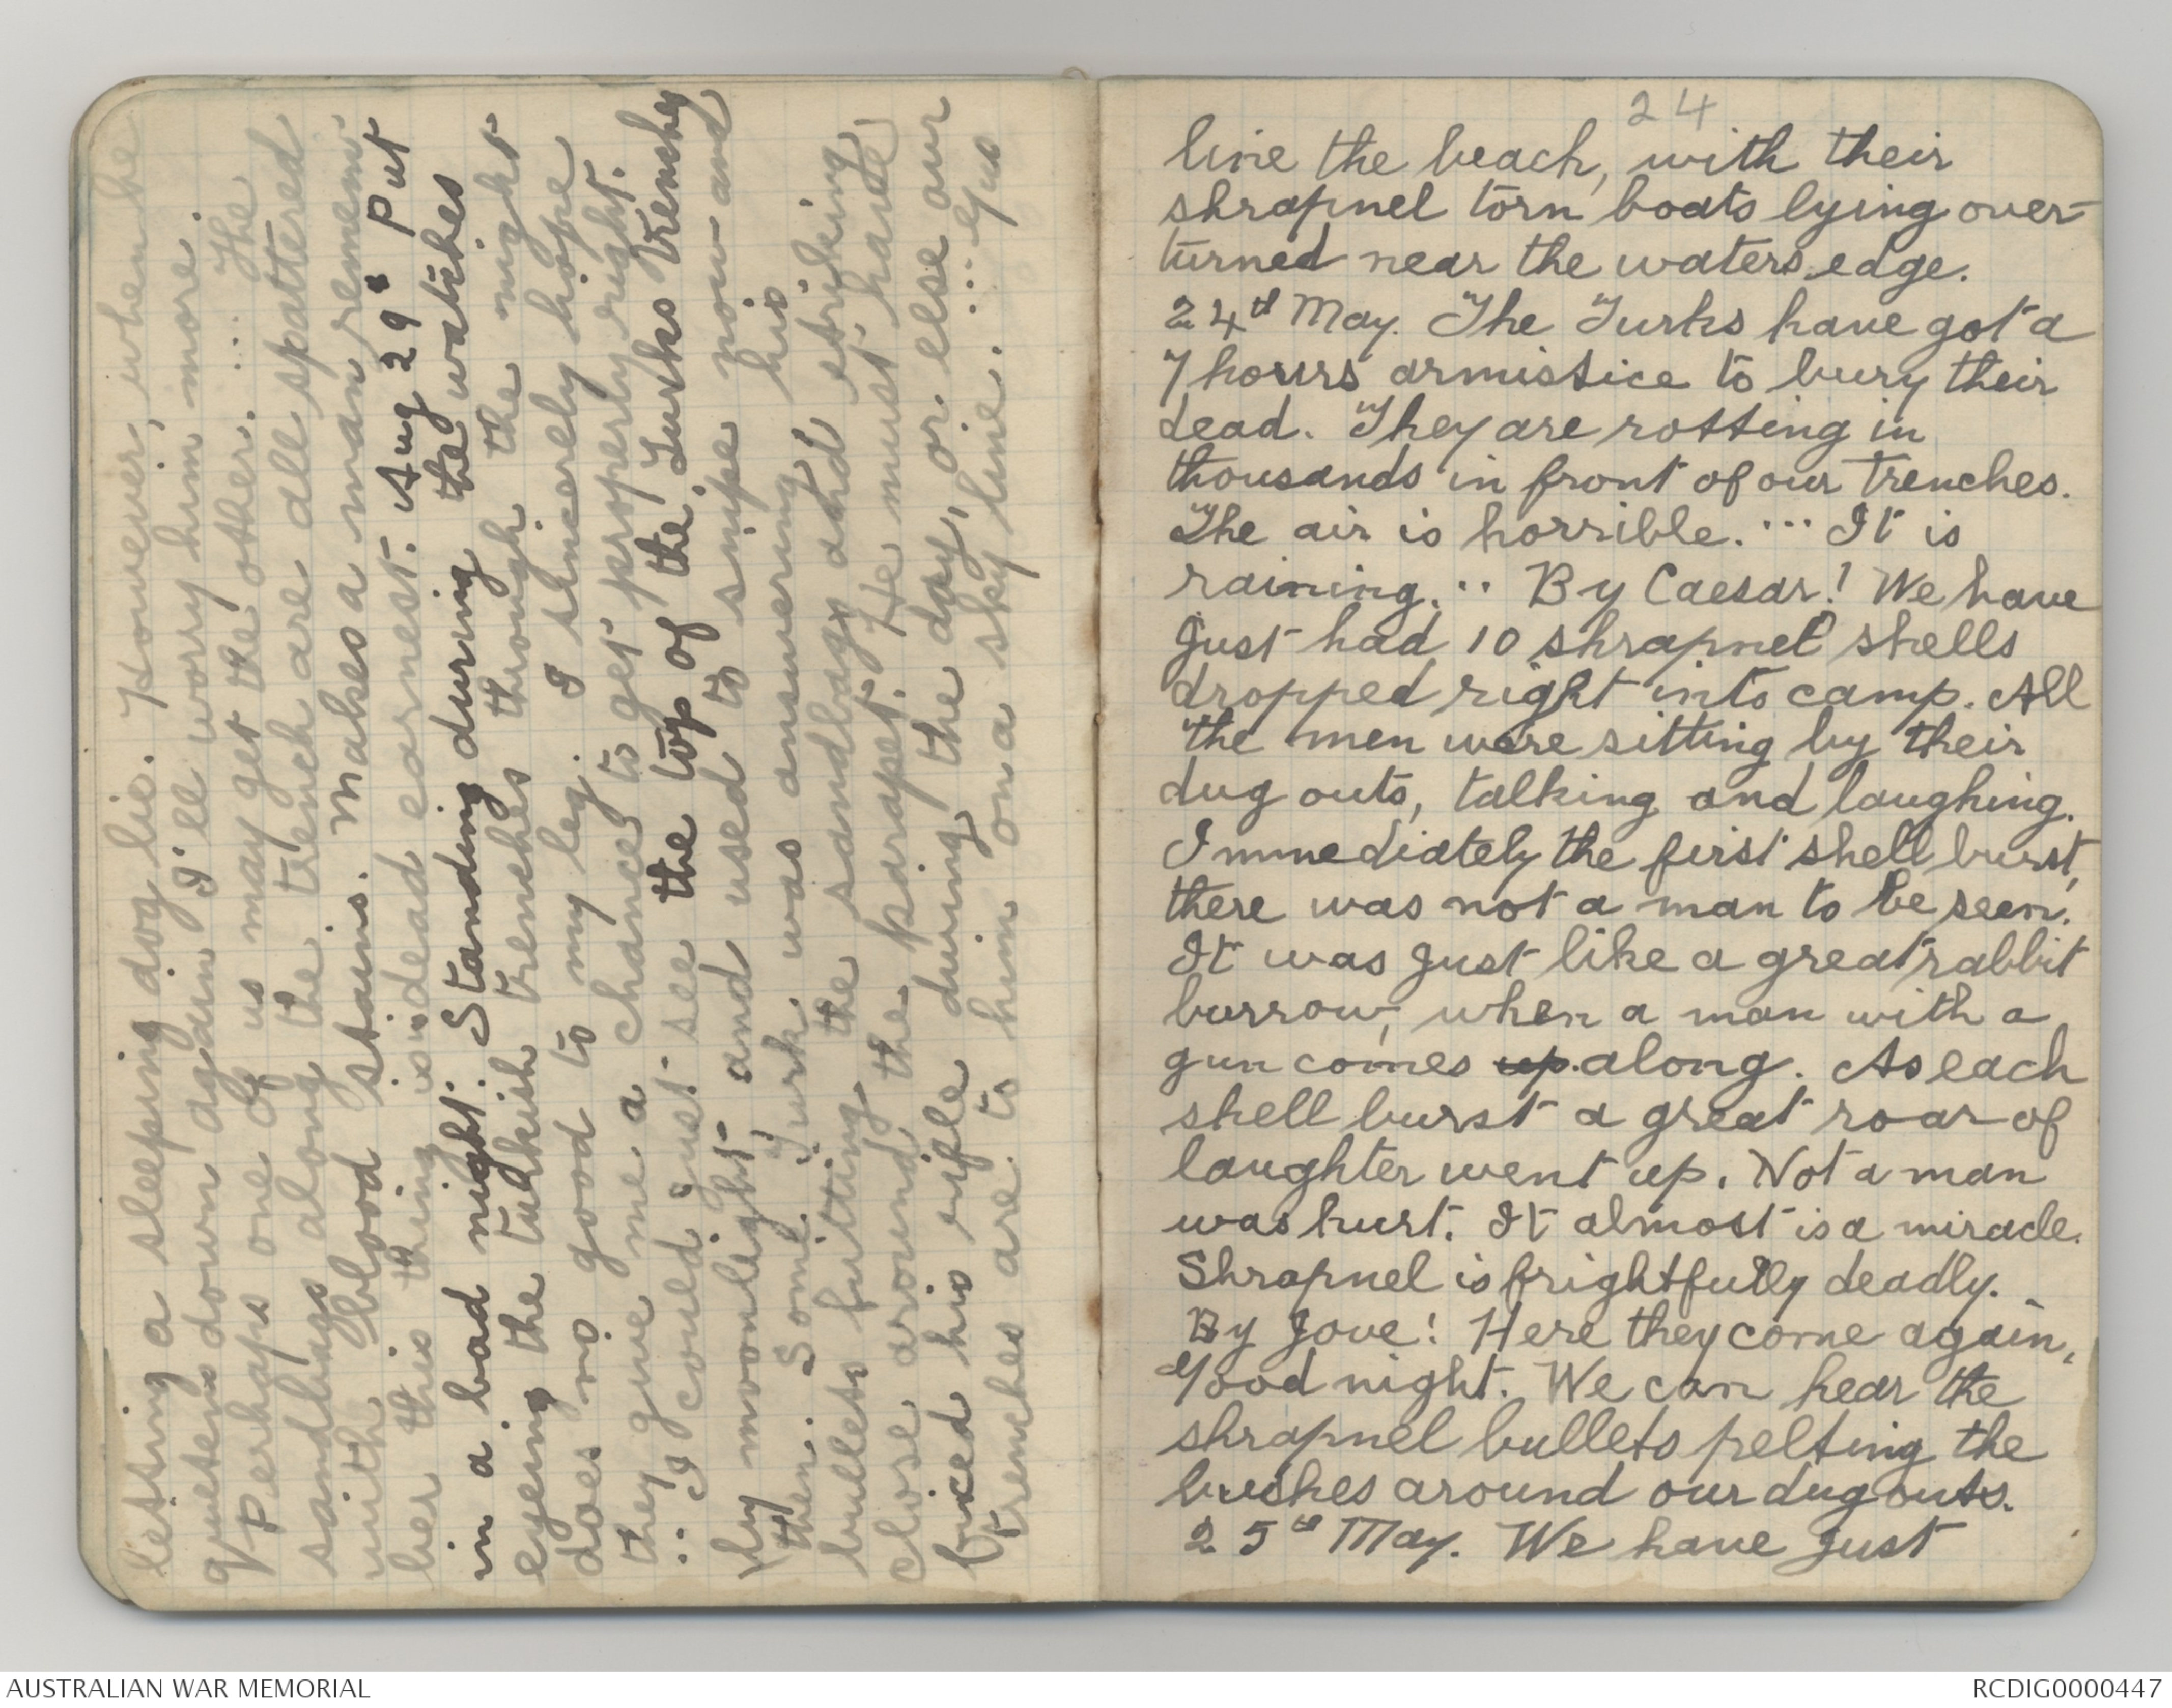 letting a sleeping dog lie. However, when he
quietens down again I'll worry him more.
Perhaps one of us may get the other. ... The
sandbags along the trench are all spattered
with blood stains. Makes a man remem-
ber this thing is dead earnest. Aug 29th Put
in a bad night. Standing during the watches
eyeing the turkish trenches through the night
does no good to my leg. I sincerely hope
they give me a chance to get properly right.
... I could just see the top of the Turks trenches
by moonlight and used to snipe now and
then. Some Turk was answering, his
bullets futting the sandbags and striking
close around the parapet. He must have
fixed his rifle during the day, or else our
trenches are to him on a sky line. ... Gus
24
line the beach, with their
shrapnel torn boats lying over-
turned near the waters edge.
24th May. The Turks have got a
7 hours armistice to bury their
dead. They are rotting in
thousands in front of our trenches.
The air is horrible. ... It is
raining. .. By Caesar! We have
just had 10 shrapnel shells
dropped right into camp. All
the men were sitting by their
dug outs, talking and laughing.
Immediately the first shell burst,
there was not a man to be seen.
It was just like a great rabbit
burrow, when a man with a
gun comes up along. As each
shell burst a great roar of
laughter went up. Not a man
was hurt. It almost is a miracle.
Shrapnel is frightfully deadly.
By Jove! Here they come again,
Good night. We can hear the
shrapnel bullets pelting the
bushes around our dug outs.
25th May. We have just
AUSTRALIAN WAR MEMORIAL
RCDIG0000447